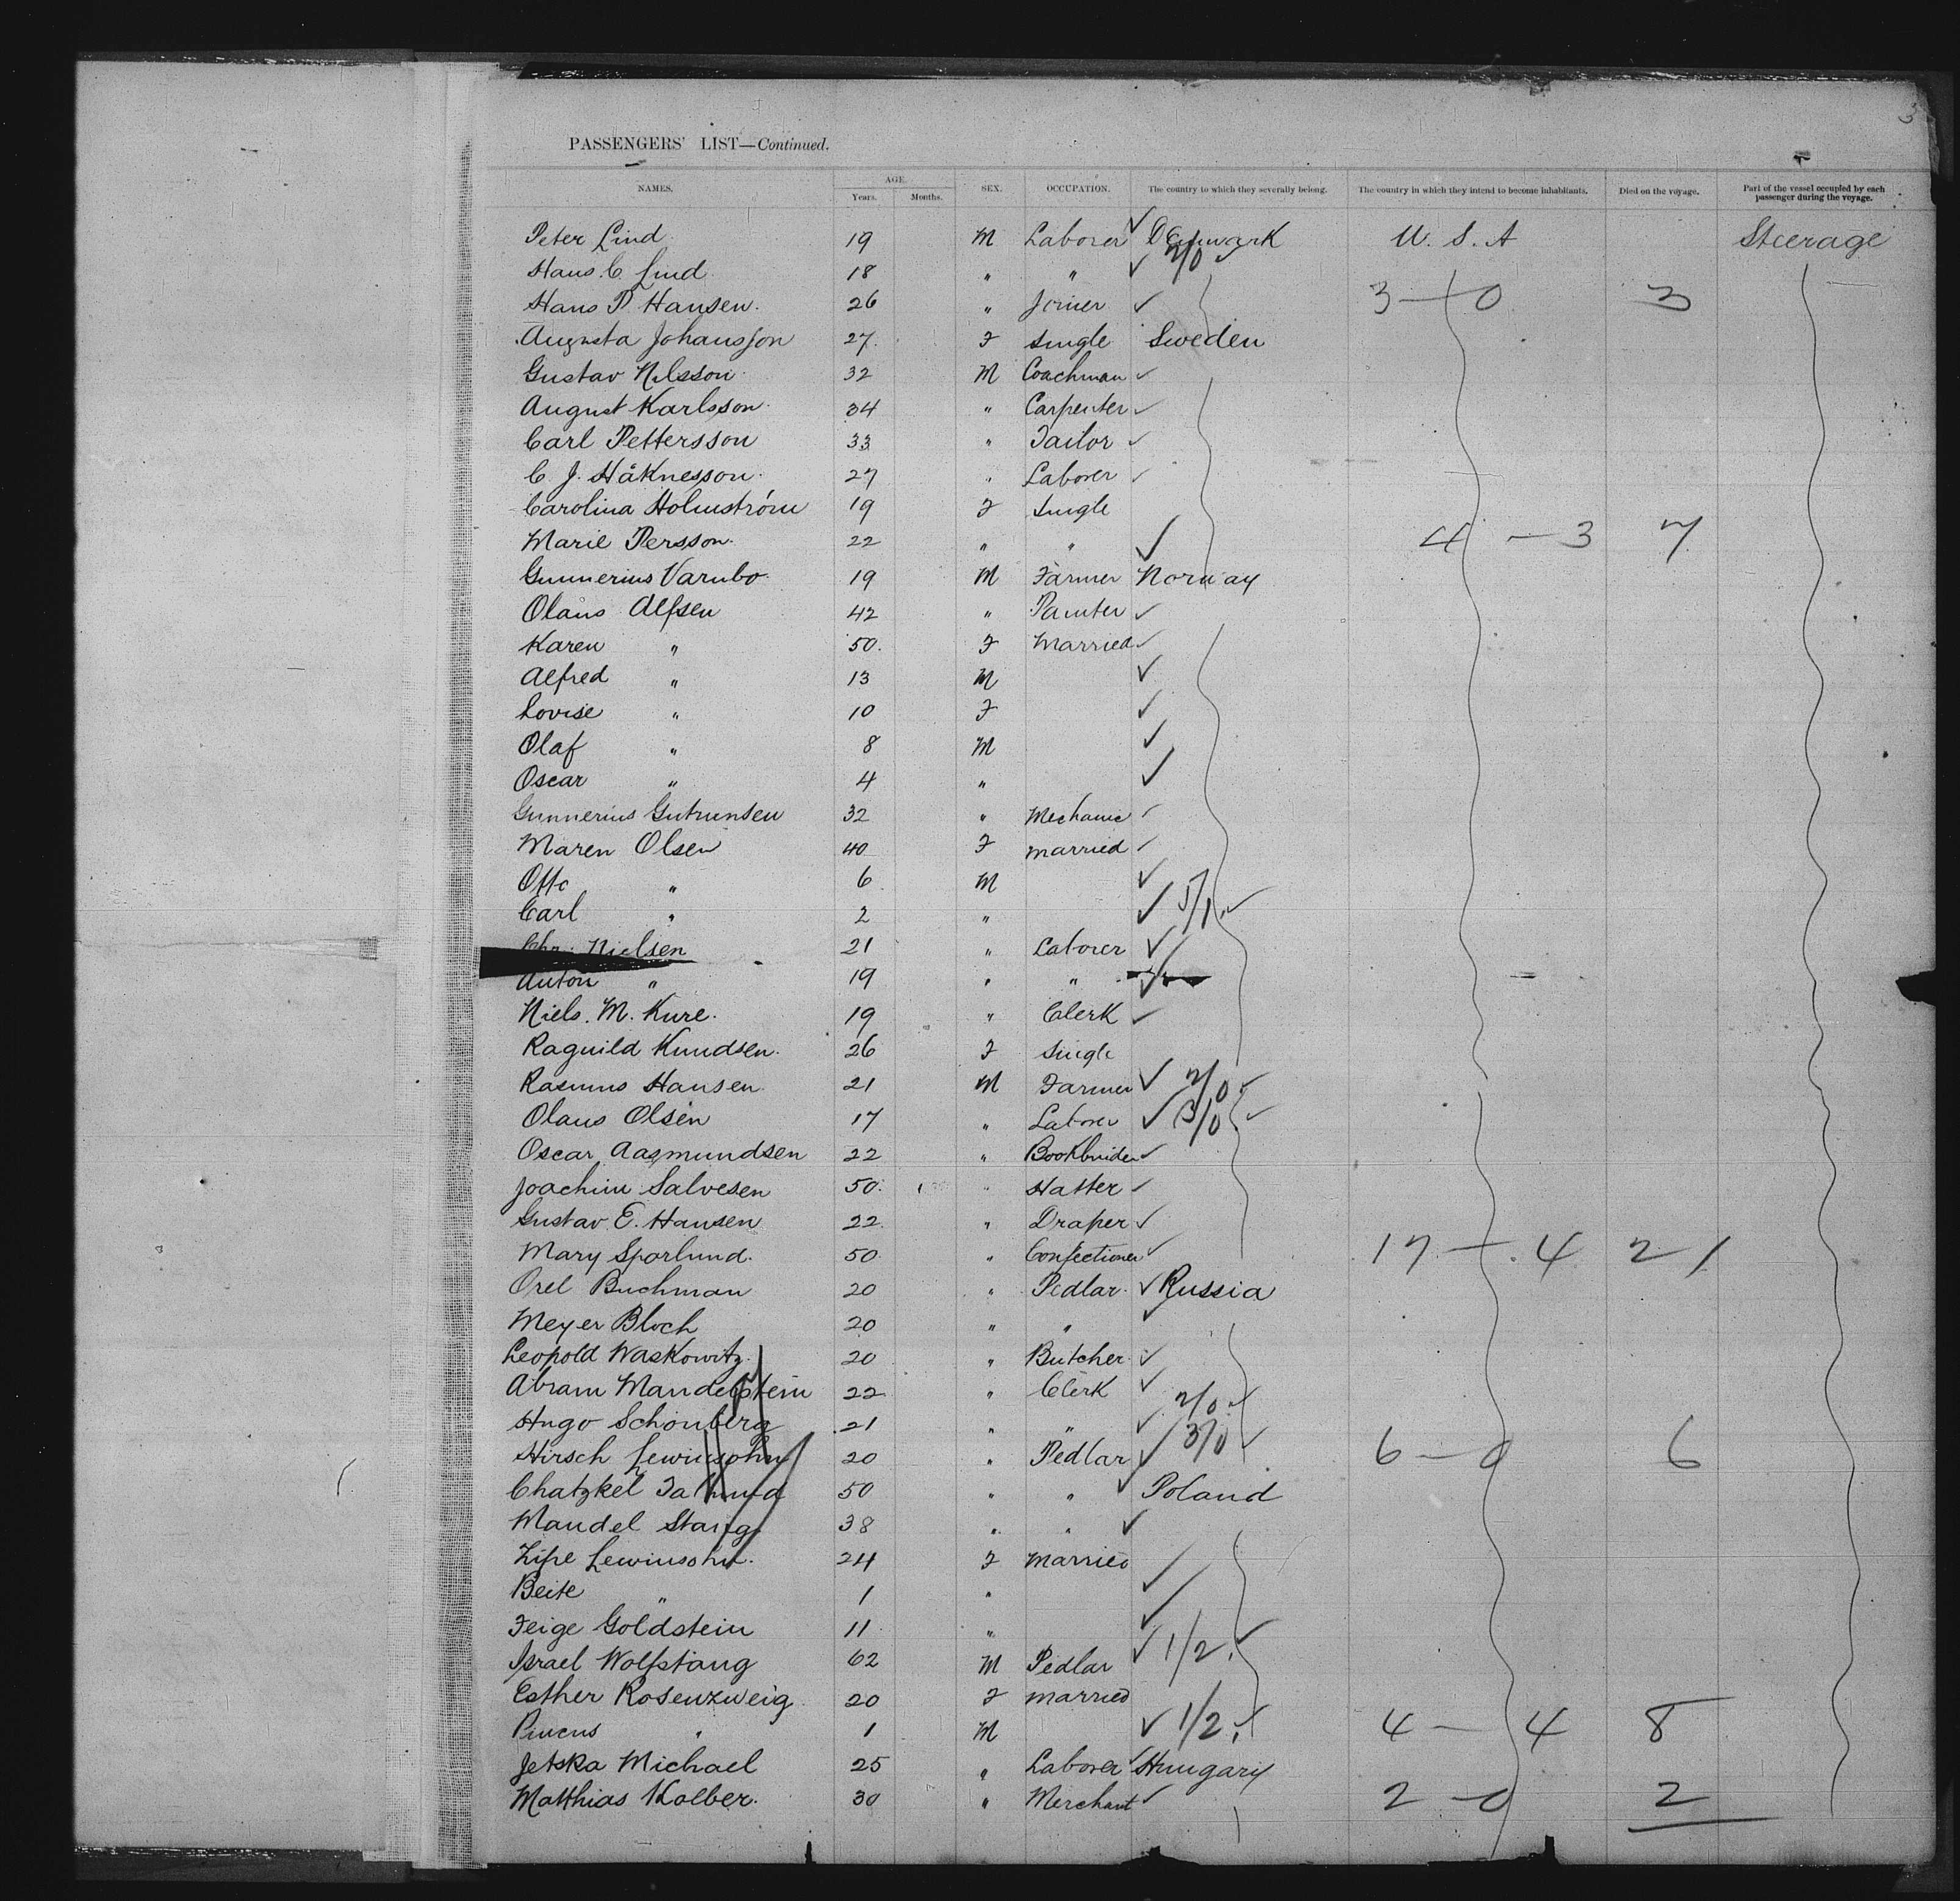 3
PASSENGERS' LIST—Continued.
NAMES. AGE. Years. Months. SEX. OCCUPATION. The country to which they severally belong. The country in which they intend to become inhabitants. Died on the voyage. Part of the vessel occupied by each passenger during the voyage.
Peter Lind 19 M Laborer ✓ Denmark U. S. A Steerage
Hans C. Lind 18 " " ✓ 2/0 ✓
Hans P. Hansen. 26 " Joiner ✓ 3 — 0 3
Augusta Johansson 27. F Single Sweden
Gustav Nilsson 32 M Coachman ✓
August Karlsson 34 " Carpenter ✓
Carl Pettersson 33 " Tailor ✓
C. J. Håknesson 27 " Laborer ✓
Carolina Holmström 19 F Single
Marie Persson 22 " " ✓ 4 — 3 7
Gunnerius Varnbo 19 M Farmer Norway
Olaus Alfsen 42 " Painter ✓
Karen " 50. F Married ✓
Alfred " 13 M ✓
Lovise " 10 F ✓
Olaf " 8 M ✓
Oscar " 4 " ✓
Gunnerius Gutrunsen 32 " Mechanic ✓
Maren Olsen 40 F married ✓
Otto " 6 M ✓
Carl " 2 " ✓ 5/1 ✓
Chr. Nielsen 21 " Laborer ✓
Anton " 19 " " ✓
Niels. M. Kure. 19 " Clerk ✓
Raguild Knudsen. 26 F Single
Rasmus Hansen 21 M Farmer ✓ 2/0 ✓
Olaus Olsen 17 " Laborer ✓ 3/0 ✓
Oscar Aagmundsen 22 " Bookbinder ✓
Joachim Salvesen 50. " Hatter ✓
Gustav E. Hansen 22 " Draper ✓
Mary Sporlund. 50 " Confectioner ✓ 17 — 4 21
Orel Buchman 20 " Pedlar. ✓ Russia
Meyer Bloch 20 " " ✓
Leopold Waskowitz 20 " Butcher ✓
Abram Mandelstein 22 " Clerk ✓ 2/0 ✓
Hugo Schonberg 21 " " ✓ 3/0 ✓
Hirsch Lewinsohn 20 " Pedlar ✓ 6 — 0 6
Chatzkel 50 " " ✓ Poland
Mandel Stang 38 " " ✓
Zipe Lewinsohn. 24 F Married ✓
Beite " 1 " ✓
Feige Goldstein 11 "
Israel Wolfstang 62 M Pedlar ✓ 1/2 ✓
Esther Rosenzweig 20 F married
Pincus " 1 M ✓ 1/2 ✓ 4 — 4 8
Jetska Michael 25 " Laborer ✓ Hungary
Matthias Kolber. 30 " Merchant ✓ 2 — 0 2